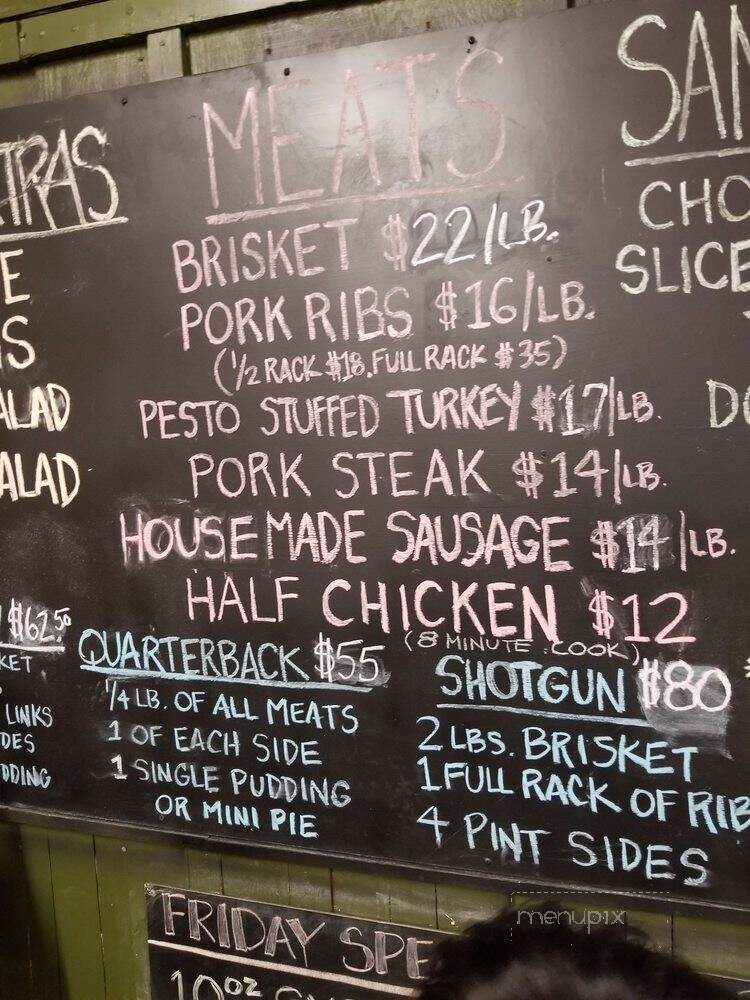 MEATS
BRISKET $22/LB.
PORK RIBS $16/LB.
(1/2 RACK $18. FULL RACK $35)
PESTO STUFFED TURKEY $17/LB.
PORK STEAK $14/LB.
HOUSEMADE SAUSAGE $14/LB.
HALF CHICKEN $12
(8 MINUTE COOK)
TRAS
E
S
ALAD
ALAD
$62.50
KET
LINKS
DES
DDING
QUARTERBACK $55
1/4 LB. OF ALL MEATS
1 OF EACH SIDE
1 SINGLE PUDDING
OR MINI PIE
SHOTGUN $80
2 LBS. BRISKET
1 FULL RACK OF RIB
4 PINT SIDES
SAN
CHO
SLICE
DO
FRIDAY SPE
10oz
menupix